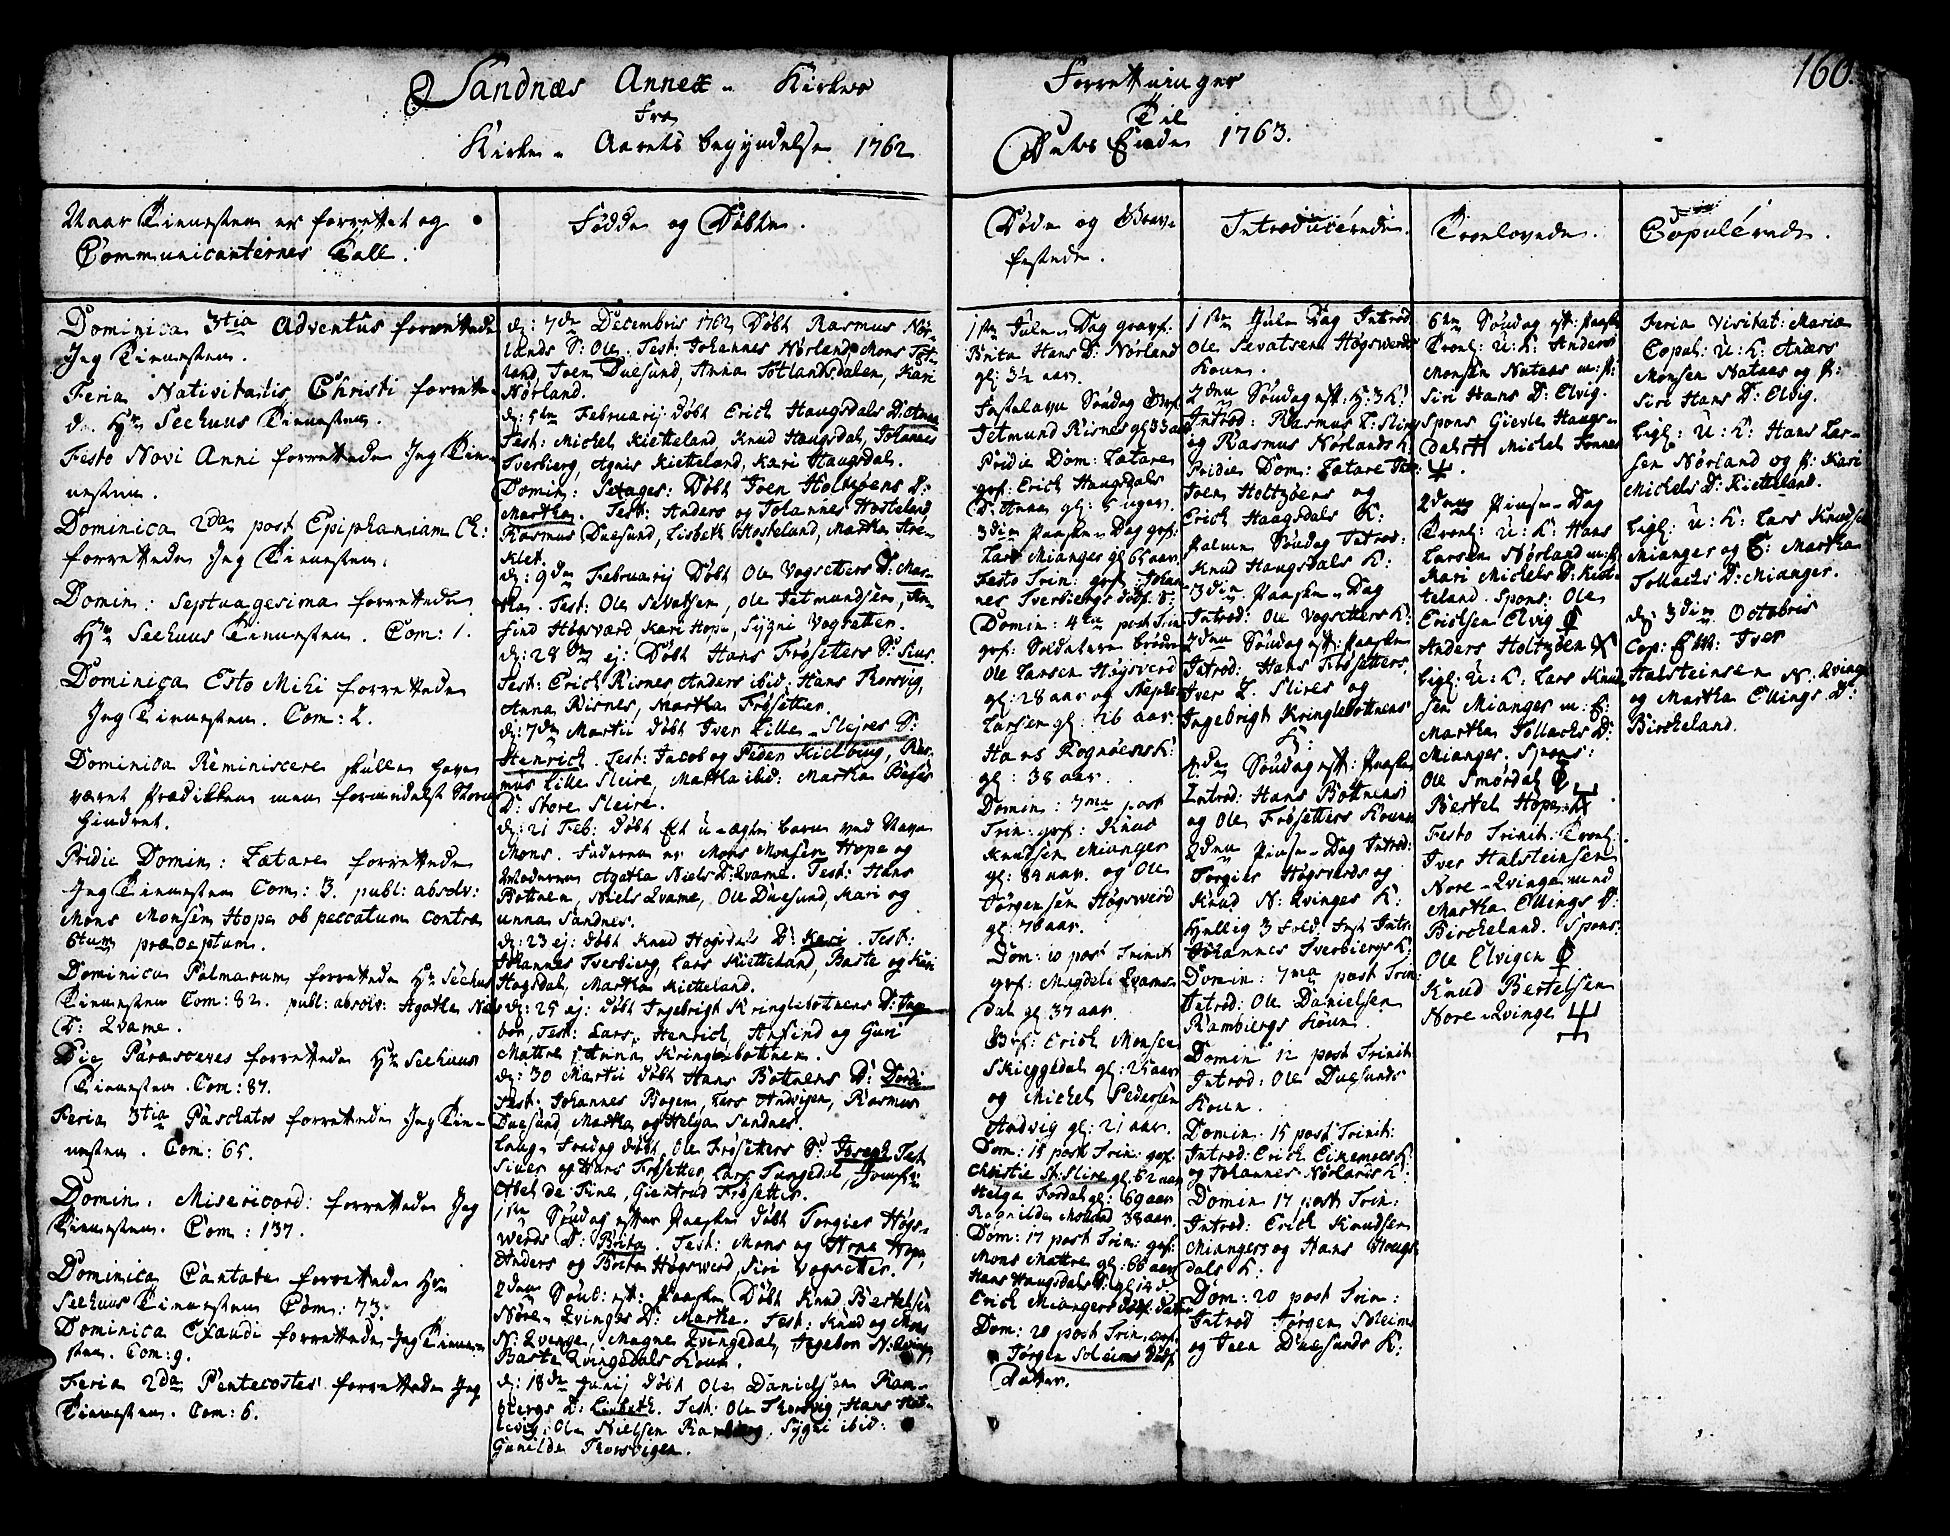 160.
Sandnæs Annex- Kirkes Forrettninger
fra Til
Kirke- Aarets begyndelse 1762 Dets Ende 1763.
Naar Tienesten er forrettet og
Communicanternes Tall.
Fødde og Døbte.
Døde og Begrav-
festede.
Introducerede.
Troelovede.
Copulerede.
Dominica 3tia Adventus forrettede
Jeg Tienesten.
Feria Nativitatis Christi forrette-
de Hr Seehuus Tienesten.
Festo Novi Anni forrettede Jeg Tien-
nesten.
Dominica 2da post Epiphaniam Ch:
forrettede Jeg Tienesten.
Domin: Septuagesima forrettede
Hr Seehuus Tienesten. Com: 1.
Dominica Esto Mihi forrettede
Jeg Tienesten. Com: 2.
Dominica Reminiscere skulle have
været Prædikken men formedelst Storm
hindret.
Pridie Domin: Lætare forrettede
Jeg Tienesten Com: 3. publ: absolv:
Mons Monsen Hope ob peccatum contra
6tum præceptum.
Dominica Palmarum forrettede Hr Seehuus
Tienesten Com: 82. publ: absolv: Agatha Niels
D: Qvame.
Die Parasceves forrettede Hr Seehuus
Tienesten Com: 87.
Feria 3tia Paschatos forrettede Jeg Tie-
nesten. Com: 65.
Domin: Misericord: forrettede Jeg
Tienesten. Com: 137.
Dominica Cantate forrettede Hr
Seehuus Tienesten Com: 73.
Dominica Exaudi forrettede Jeg Tiene-
sten. Com: 9.
Feria 2da Pentecostes forrettede Jeg
Tienesten. Com: 6.
d: 7de Decembris 1762 Døbt Rasmus Nør-
lands S: Ole. Test: Johannes Nørland, Mons Tot-
land, Joen Duesund, Anna Totlandsdalen, Kari
Nørland.
d: 5te Februarij Døbt Erich Haugsdals D: Anna
Test: Michel Kietteland, Knud Haugsdal, Johannes
Tverbierg, Agnis Kietteland, Kari Haugsdal.
Domin: Sexages: Døbt Joen Holtzøens D:
Martha. Test: Anders og Johannes Hosteland,
Rasmus Duesund, Lisbeth Hosteland, Martha
d: 9de Februarij Døbt Ole Vogsetters D: Mar-
tha. Test: Ole Sevatsen, Ole Jetmundsen, An-
find Høgsværd Kari Hope, Sygni Vogsetter.
d: 28de ej: Døbt Hans Frøsetters S: Sius.
Test: Erich Risnes Anders ibid: Hans Thorsvig,
Anna Risnes, Martha Frøsetter.
d: 7de Martii Døbt Iver Lille-Sleires S:
Henrich. Test: Jacob og Peder Kielbye, Ras-
mus Lille Sleire, Martha ibid: Martha
D: Store Sleire.
d: 21 Feb: Døbt Et u-ægte barn ved Navn
Mons. Faderen er Mons Monsen Hope og
Moderen Agatha Niels D: Qvame. Test: Hans
Botnen, Niels Qvame, Ole Duesund, Kari og
Anna Sandnes.
d: 23 ej: Døbt Knud Hogsdals D: Kari. Test:
Johannes Tverbierg, Lars Kietteland, Baste og Kari
Hogsdal, Martha Kietteland.
d: 25 ej: Døbt Ingebrigt Kringlebotnens D: Inge-
bor, Test: Lars, Henrich, Anfind og Guri
Mattre, Anna Kringlebottnen.
d: 30 Martii Døbt Hans Bottnens D: Dordi
Test: Johannes Bogen, Lars Andvigen, Rasmus
Duesund, Martha og Helga Sandnes.
Lang-Fredag Døbt Ole Frøsetters S: Joseph Test:
Siver og Hans Frøsetter, Lars Tangedal, Jomfru
Abel de Fine, Giertrud Frøsetter.
1ste Søndag efter Paaske Døbt Torgies Høgs-
werds D: Brita. Test: Mons og Arne Hope,
Anders og Brita Høgswerd, Siri Vogsetter.
2den Sønd: eft: Paaske Døbt Knud Bertelsen
Nore-Qvinges D: Marthe. Test: Knud og Mons
N: Qvinge, Magne Qvingedal, Ingebor N: Qvinge,
Baste Qvingedals Kone.
d: 18de Junij Døbt Ole Danielsen Ram-
bergs D: Lisbeth. Test: Ole Thorsvig, Hans
Ole Nielsen Ramberg, Sygni ibid:
Gunilde Thorsvigen.
1ste Jule-Dag gravf:
Brita Hans D: Nørland
gl: 3½ aar.
Fastelavn Søndag Grf:
Jetmund Risnes gl: 33 aar
Pridie Dom: Lætare
grf: Erich Haugsdals
D: Anna gl: 5 uger.
3die Paaske-Dag grf:
Lars Mianger gl: 62 aar.
Festo Trin: grf: Johan-
nes Tverbiergs dødf: S:
Domin: 4ta post Trin:
grf: Soldaterne brødrene
Ole Larsen Høgsverd
gl: 28 aar og Stephen
Larsen gl: 26 aar.
Hans Rognøens K:
gl: 38 aar.
Domin: 7ma post
Trin: grf: Knud
Knudsen Mianger
gl: 84 aar. og Ole
Jørgensen Høgsværd
gl: 76 aar.
Dom: 10 post Trinit
grf: Magdeli Qvams-
dal gl: 37 aar.
Grf: Erich Monsen
Skieggedal gl: 25 aar
og Michel Pedersen
Andvig gl: 21 aar.
Dom: 15 post Trin: grf:
Christie St: Slire gl: 62 aar
Helga Fordal gl: 69 aar
Ragnilde 38 aar.
Dom: 17 post Trin: grf:
Mons Mattre gl: 66 aar
Hans Haugsdals S: gl: 14 d:
Erich Miangers dødf: datter
Dom: 20 post Trin. grf:
Jørgen Soleims dødf.
Datter.
1ste Jule Dag Introd:
Ole Sevatsen Høgswerds
Kone.
2den Søndag eft: H: 3 K:
Introd: Rasmus L: Slires
og Rasmus Nørlands K:
Pridie Dom: Lætare Intr:
Joen Holtzøens og
Erich Haugsdals K:
Palme Søndag Introd:
Knud Haugsdals K:
3die Paaske-Dag
Introd: Ole Vogsetters K:
2den Søndag eft: Paaske
Introd: Hans Frøsetters
Iver L. Slires og
Ingebrigt Kringlebotnens
K:
4de Søndag eft: Paaske
Introd: Hans Bottnens
og Ole Frøsetters Koner
2den Pinse-Dag Introd:
Torgies Høgswerds og
Knud N: Qvinges K:
Hellig 3 fold: Fest Intr:
Johannes Tverbiergs K:
Domin: 7ma post Trin:
Introd: Ole Danielsen
Rambergs Kone.
Domin 12 post Trinit:
Introd: Ole Duesunds
Kone.
Domin: 15 post Trinit:
Introd: Erich K:
og Johannes Nørlands K:
Domin 17 post Trin:
Introd: Erich Knudsen
Miangers og Hans Hougs-
dals K:
Dom: 20 post Trin:
Introd Jørgen Soleims
og Joen Duesunds K:
6te Søndag eft: Paaske
Troel: U: K: Anders
Monsen Nataas m: P:
Siri Hans D: Elvig.
Spons Gievle Haugs-
dal Michel Fonnes
2den Pinse-Dag
Troel: U: K: Hans
Larsen Nørland m: P:
Kari Michels D: Kiet-
teland. Spons: Ole
Erichsen Elvig
Anders Holtzøen
Ligl: U: K: Lars Knud-
sen Mianger m: E:
Martha Tollachs D:
Mianger, Spons:
Ole Smørdal
Bertel Hope
Festo Trinit: Troel:
Iver Halsteinsen
Nore-Qvinge med
Martha Ellings D:
Birckeland. Spons:
Ole Elvigen
Knud Bertelsen
Nore-Qvinge
Feria Visitat: Mariæ
Copul: U: K: Anders
Monsen Nataas og P:
Siri Hans D: Elvig.
Ligl: U: K: Hans Lar-
sen Nørland og P: Kari
Michels D: Kietteland.
Ligl: U: K: Lars Knudsen
Mianger og E: Martha
Tollachs D: Mianger.
d: 3die Octobris
Cop: Iver
Halsteinsen N: Qvinge
og Martha Ellings D:
Birckeland.